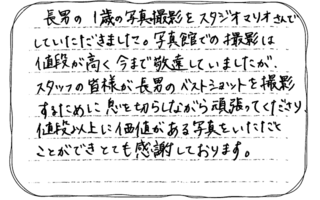 長男の1歳の写真撮影をスタジオマリオさんで
していただきました。写真館での撮影は
値段が高く今まで敬遠していましたが、
スタッフの皆様が長男のベストショットを撮影
するために息を切らしながら頑張ってくださり、
値段以上に価値がある写真をいただくこ
ことができとても感謝しております。